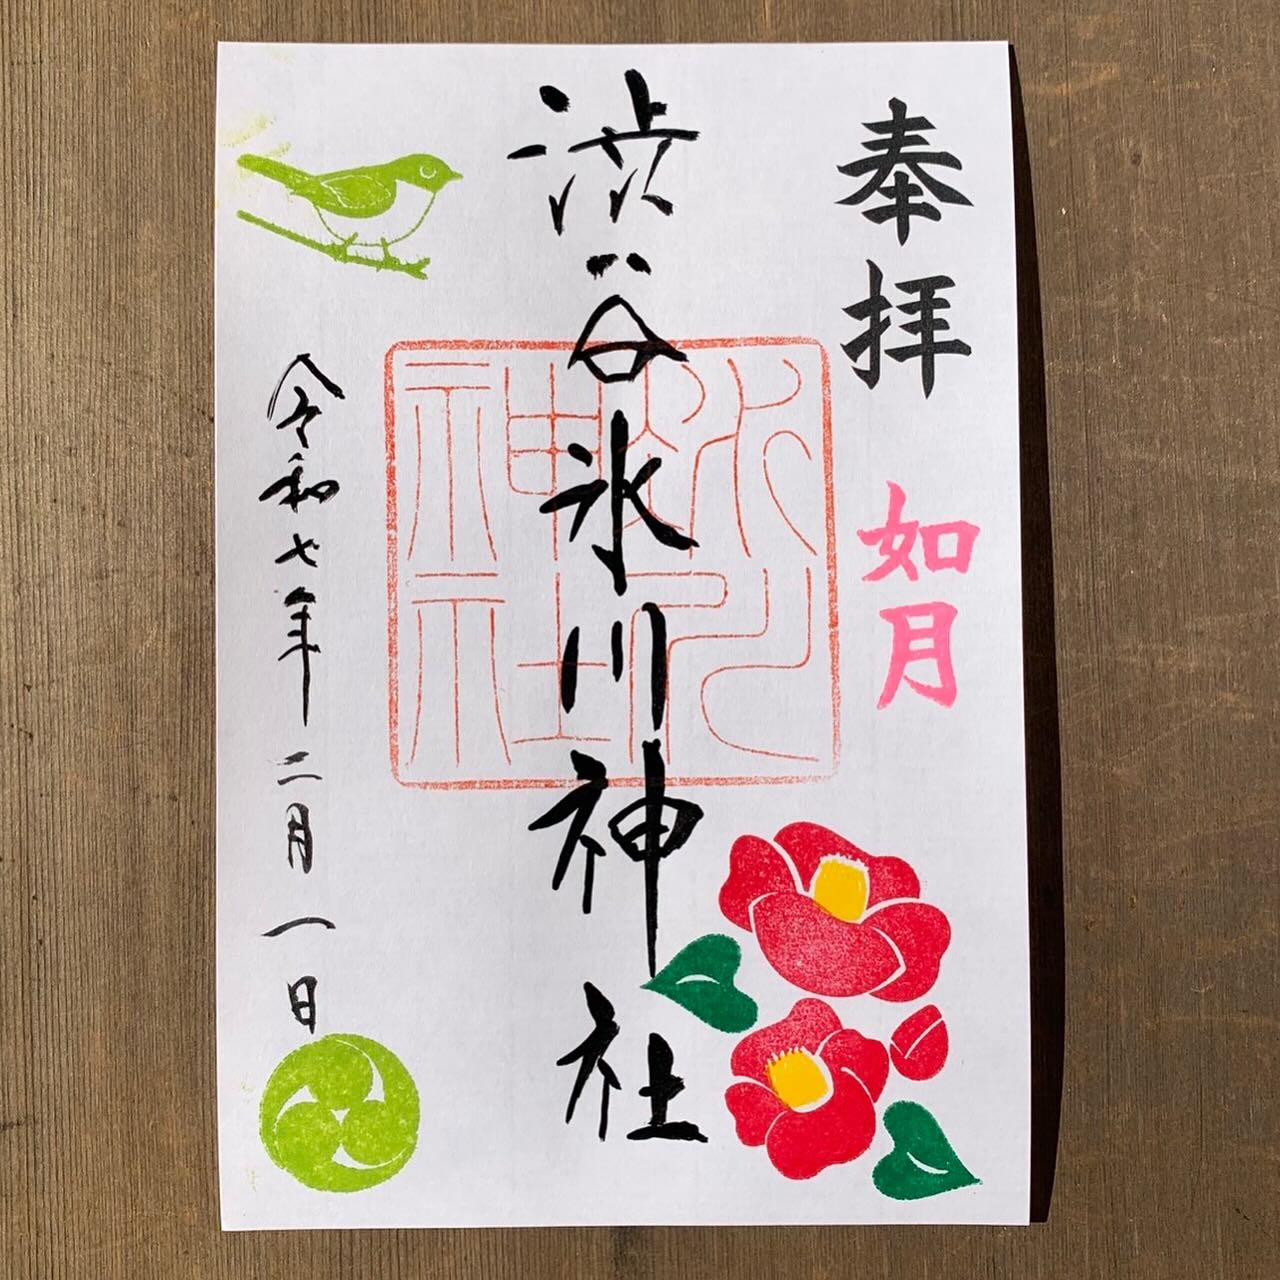 奉拝
如月
渋谷氷川神社
氷川神社
令和七年二月一日